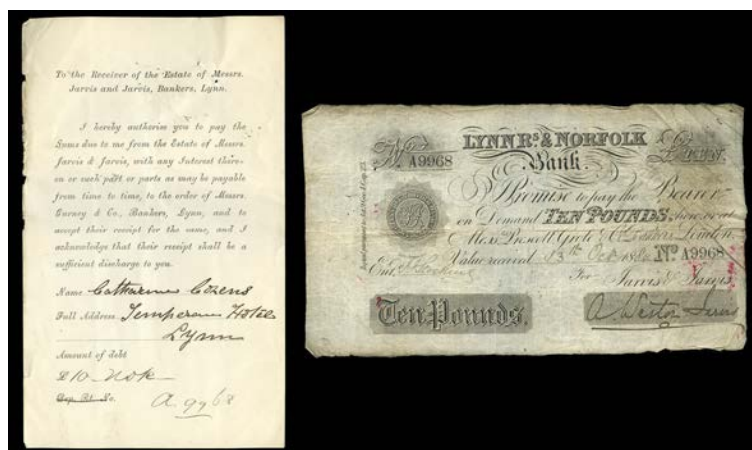 To the Receiver of the Estate of Messrs.
Jarvis and Jarvis, Bankers, Lynn.
I hereby authorise you to pay the
Sums due to me from the Estate of Messrs.
Jarvis & Jarvis, with any Interest there-
on or each part or parts as may be payable
from time to time, to the order of Messrs.
Gurney & Co., Bankers, Lynn, and to
accept their receipt for the same, and I
acknowledge that their receipt shall be a
sufficient discharge to you.
Name Catharine Cozens
Full Address Temperance Hotel
Lynn
Amount of debt
£10 Note
No.
A 9968
LYNN Rs. & NORFOLK
Bank.
No. A9968
£ TEN.
I Promise to pay the Bearer
on Demand TEN POUNDS, here or at
Messrs. Prescott, Grote & Co. Bankers London
Value received 13th Oct 1880 No. A9968
For Jarvis & Jarvis
Ent.
Ten Pounds.
A Weston Jarvis